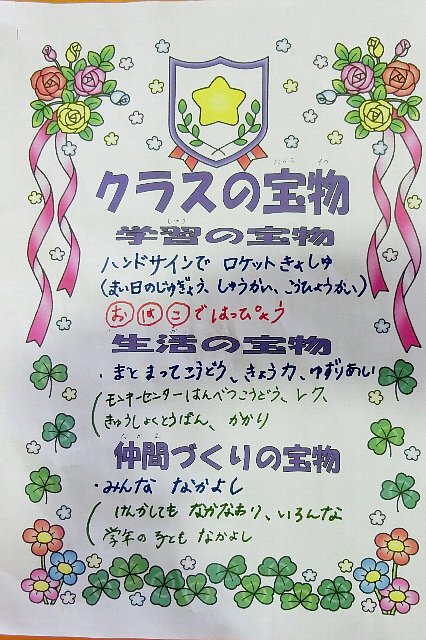 クラスの宝物
学習の宝物
ハンドサインで ロケットきょしゅ
(まい日のじゅぎょう、しゅうかい、こうひょうかい)
おはこではっぴょう
生活の宝物
・まとまってこうどう、きょう力、ゆずりあい
(モンキーセンターはんべつこうどう、レク、
きゅうしょくとうばん、かかり
仲間づくりの宝物
・みんな なかよし
(けんかしても なかなおり、いろんな
学年の子とも なかよし